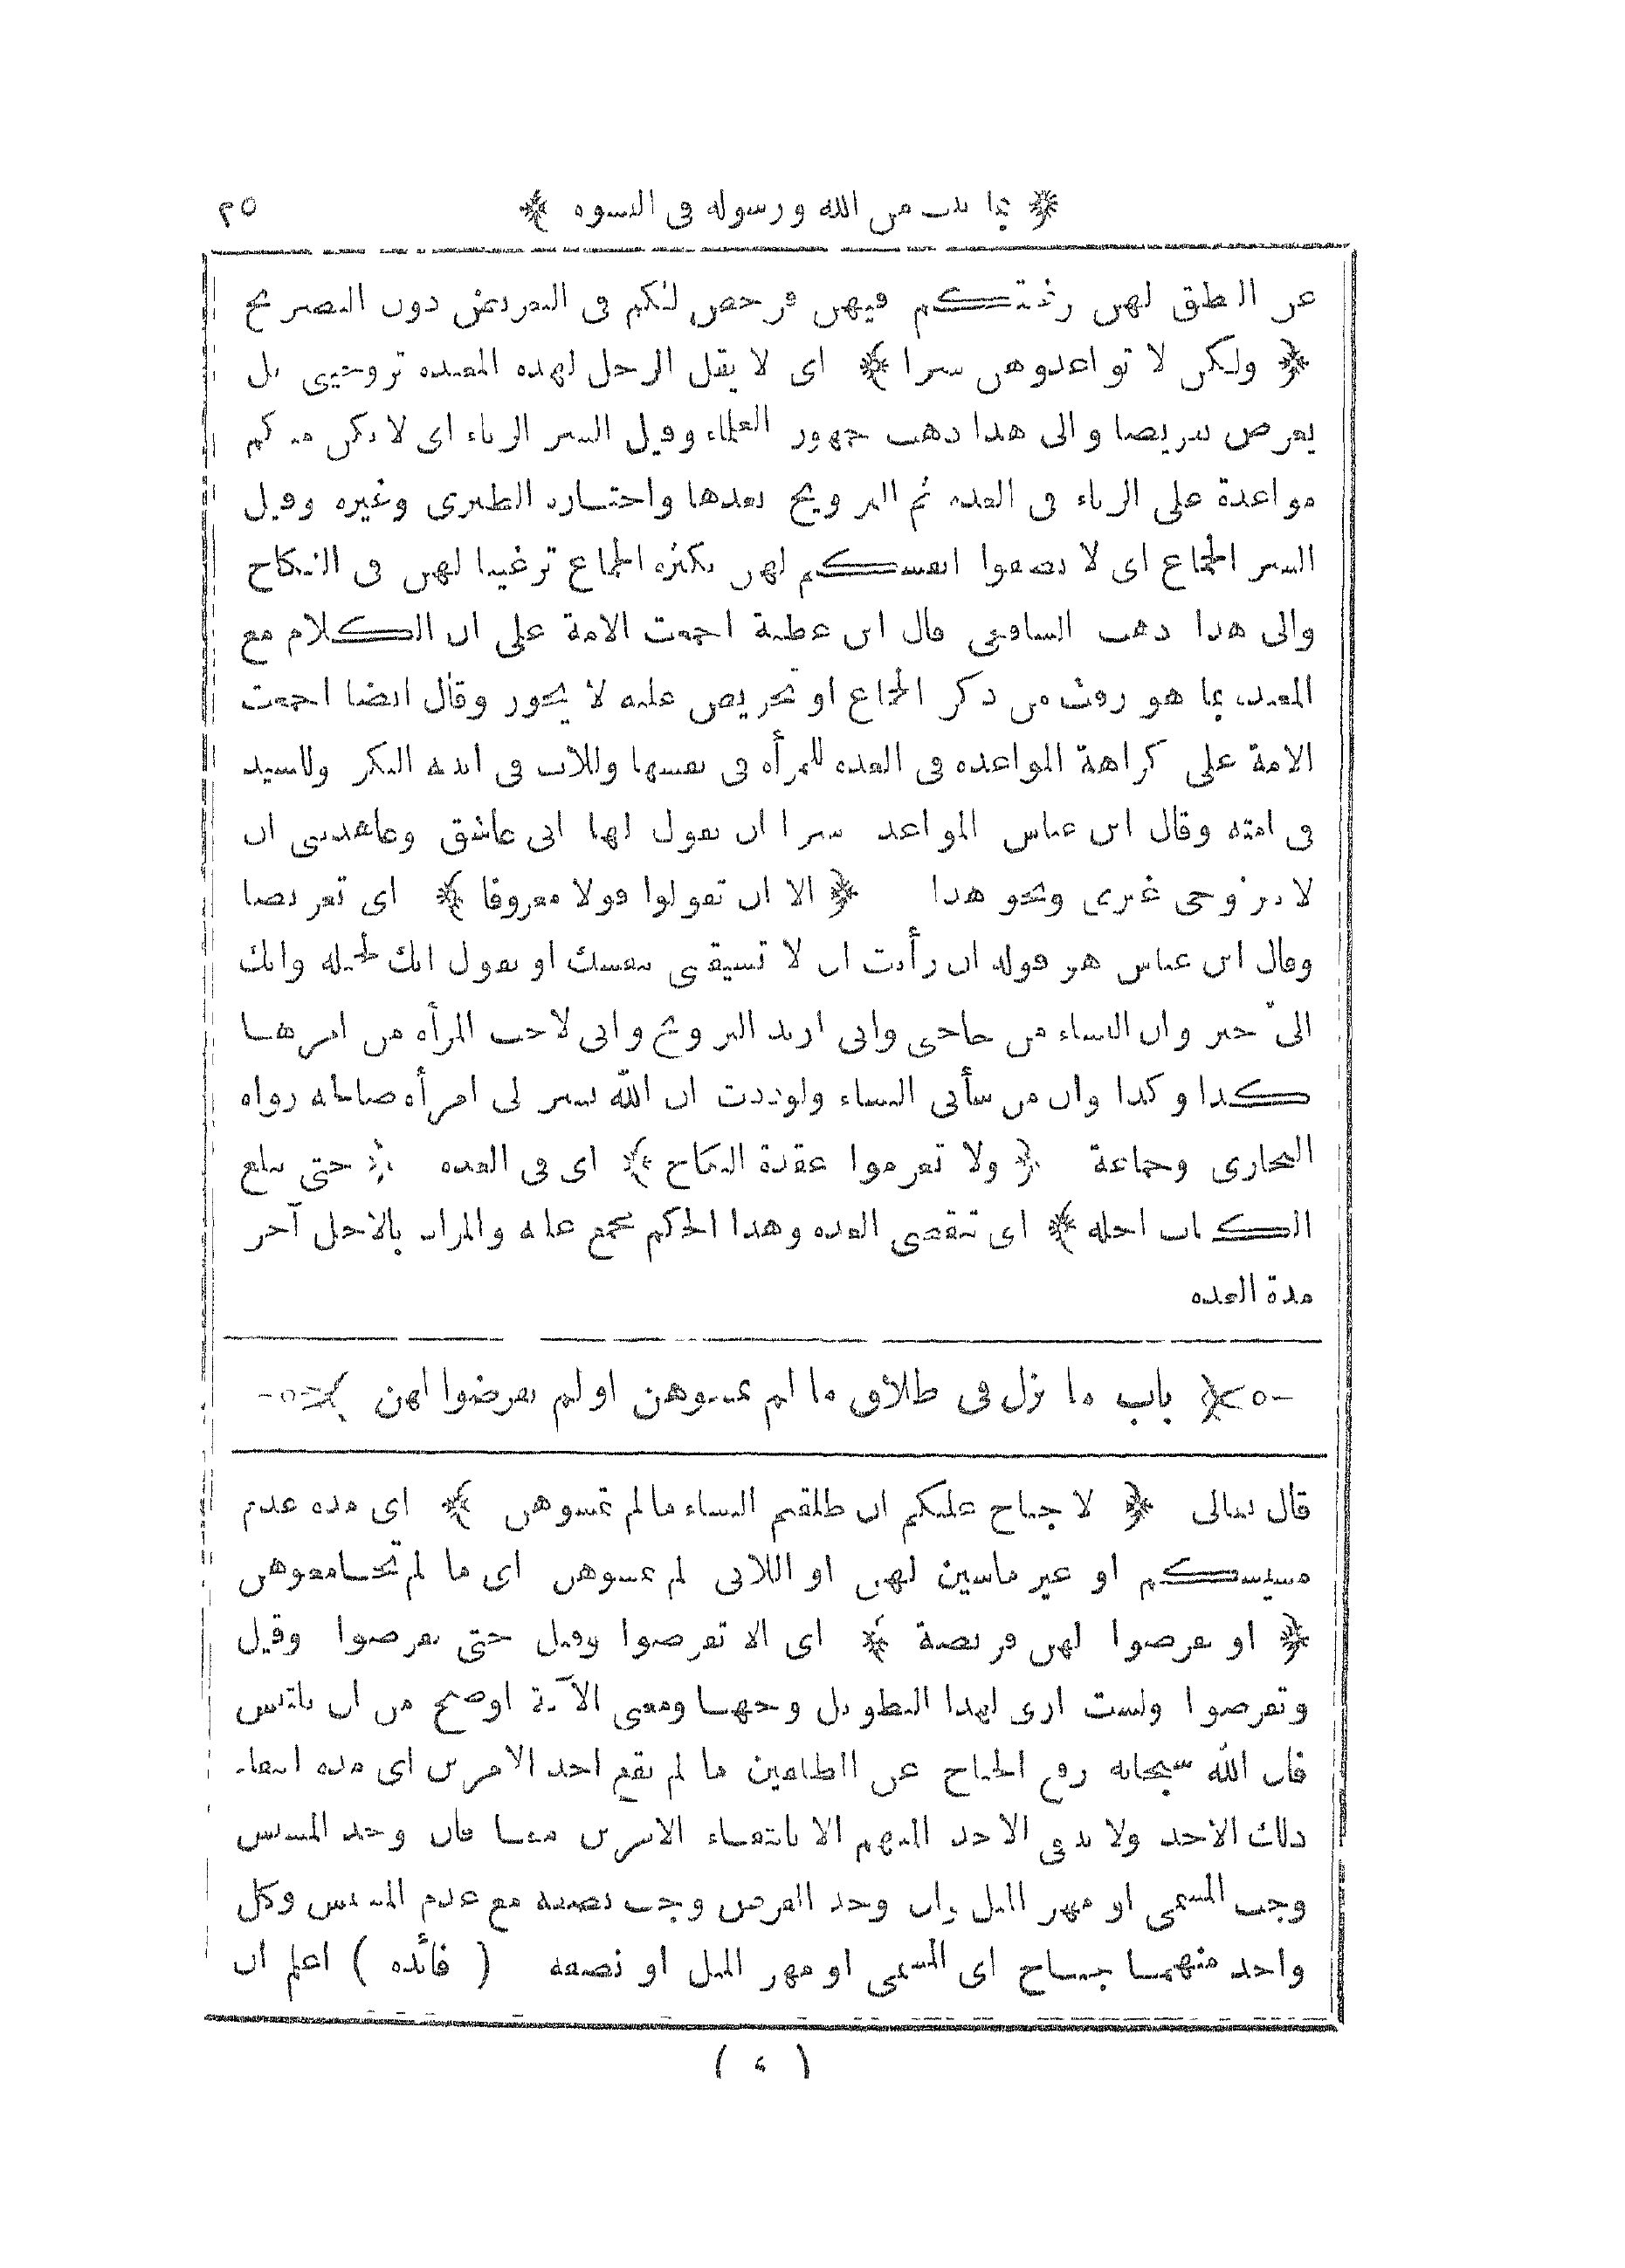 ﴿ بما ثبت من الله ورسوله فى النسوة ﴾ ٢٥
عن النطق لهن برغبتكم فيهن فرخص لكم فى التعريض دون التصريح
﴿ ولكن لا تواعدوهن سرا ﴾ اى لا يقل الرجل لهذه المعتدة تزوجينى بل
يعرض تعريضا والى هذا ذهب جمهور العلماء وقيل السر الزناء اى لا يكن منكم
مواعدة على الزناء فى العدة ثم التزويج بعدها واختاره الطبرى وغيره وقيل
السر الجماع اى لا تصفوا انفسكم لهن بكثرة الجماع ترغيبا لهن فى النكاح
والى هذا ذهب الشافعى قال ابن عطية اجمعت الامة على ان الكلام مع
المعتدة بما هو رفث من ذكر الجماع او تحريض عليه لا يجوز وقال ايضا اجمعت
الامة على كراهة المواعدة فى العدة للمرأة فى نفسها وللاب فى ابنته البكر وللسيد
فى امته وقال ابن عباس المواعدة سرا ان يقول لها انى عاشق وعاهدينى ان
لا تتزوجى غيرى ونحو هذا ﴿ الا ان تقولوا قولا معروفا ﴾ اى تعريضا
وقال ابن عباس هو قوله ان رأيت ان لا تسبقينى بنفسك او يقول انك لجميلة وانك
الىّ خير وان النساء من حاجتى وانى اريد التزويج وانى لاحب المرأة من امرها
كذا وكذا وان من شأنى النساء ولوددت ان الله يسر لى امرأة صالحة رواه
البخارى وجماعة ﴿ ولا تعزموا عقدة النكاح ﴾ اى فى العدة ﴿ حتى يبلغ
الكتاب اجله ﴾ اى تنقضى العدة وهذا الحكم مجمع عليه والمراد بالاجل آخر
مدة العدة
باب ما نزل فى طلاق ما لم تمسوهن او لم تفرضوا لهن
قال تعالى ﴿ لا جناح عليكم ان طلقتم النساء ما لم تمسوهن ﴾ اى مدة عدم
مسيسكم او غير ماسين لهن او اللاتى لم تمسوهن اى ما لم تجامعوهن
﴿ او تفرضوا لهن فريضة ﴾ اى الا تفرضوا وقيل حتى تفرضوا وقيل
وتفرضوا ولست ارى لهذا التطويل وجها ومعنى الآية اوضح من ان يلتبس
فان الله سبحانه رفع الجناح عن المطلقين ما لم يقع احد الامرين اى مدة انتفاء
ذلك الاحد ولا ينتفى الاحد المبهم الا بانتفاء الامرين معا فان وجد المسيس
وجب المسمى او مهر المثل وان وجد الفرض وجب نصفه مع عدم المسيس وكل
واحد منهما جناح اى المسمى او مهر المثل او نصفه ( فائدة ) اعلم ان
( ٤ )